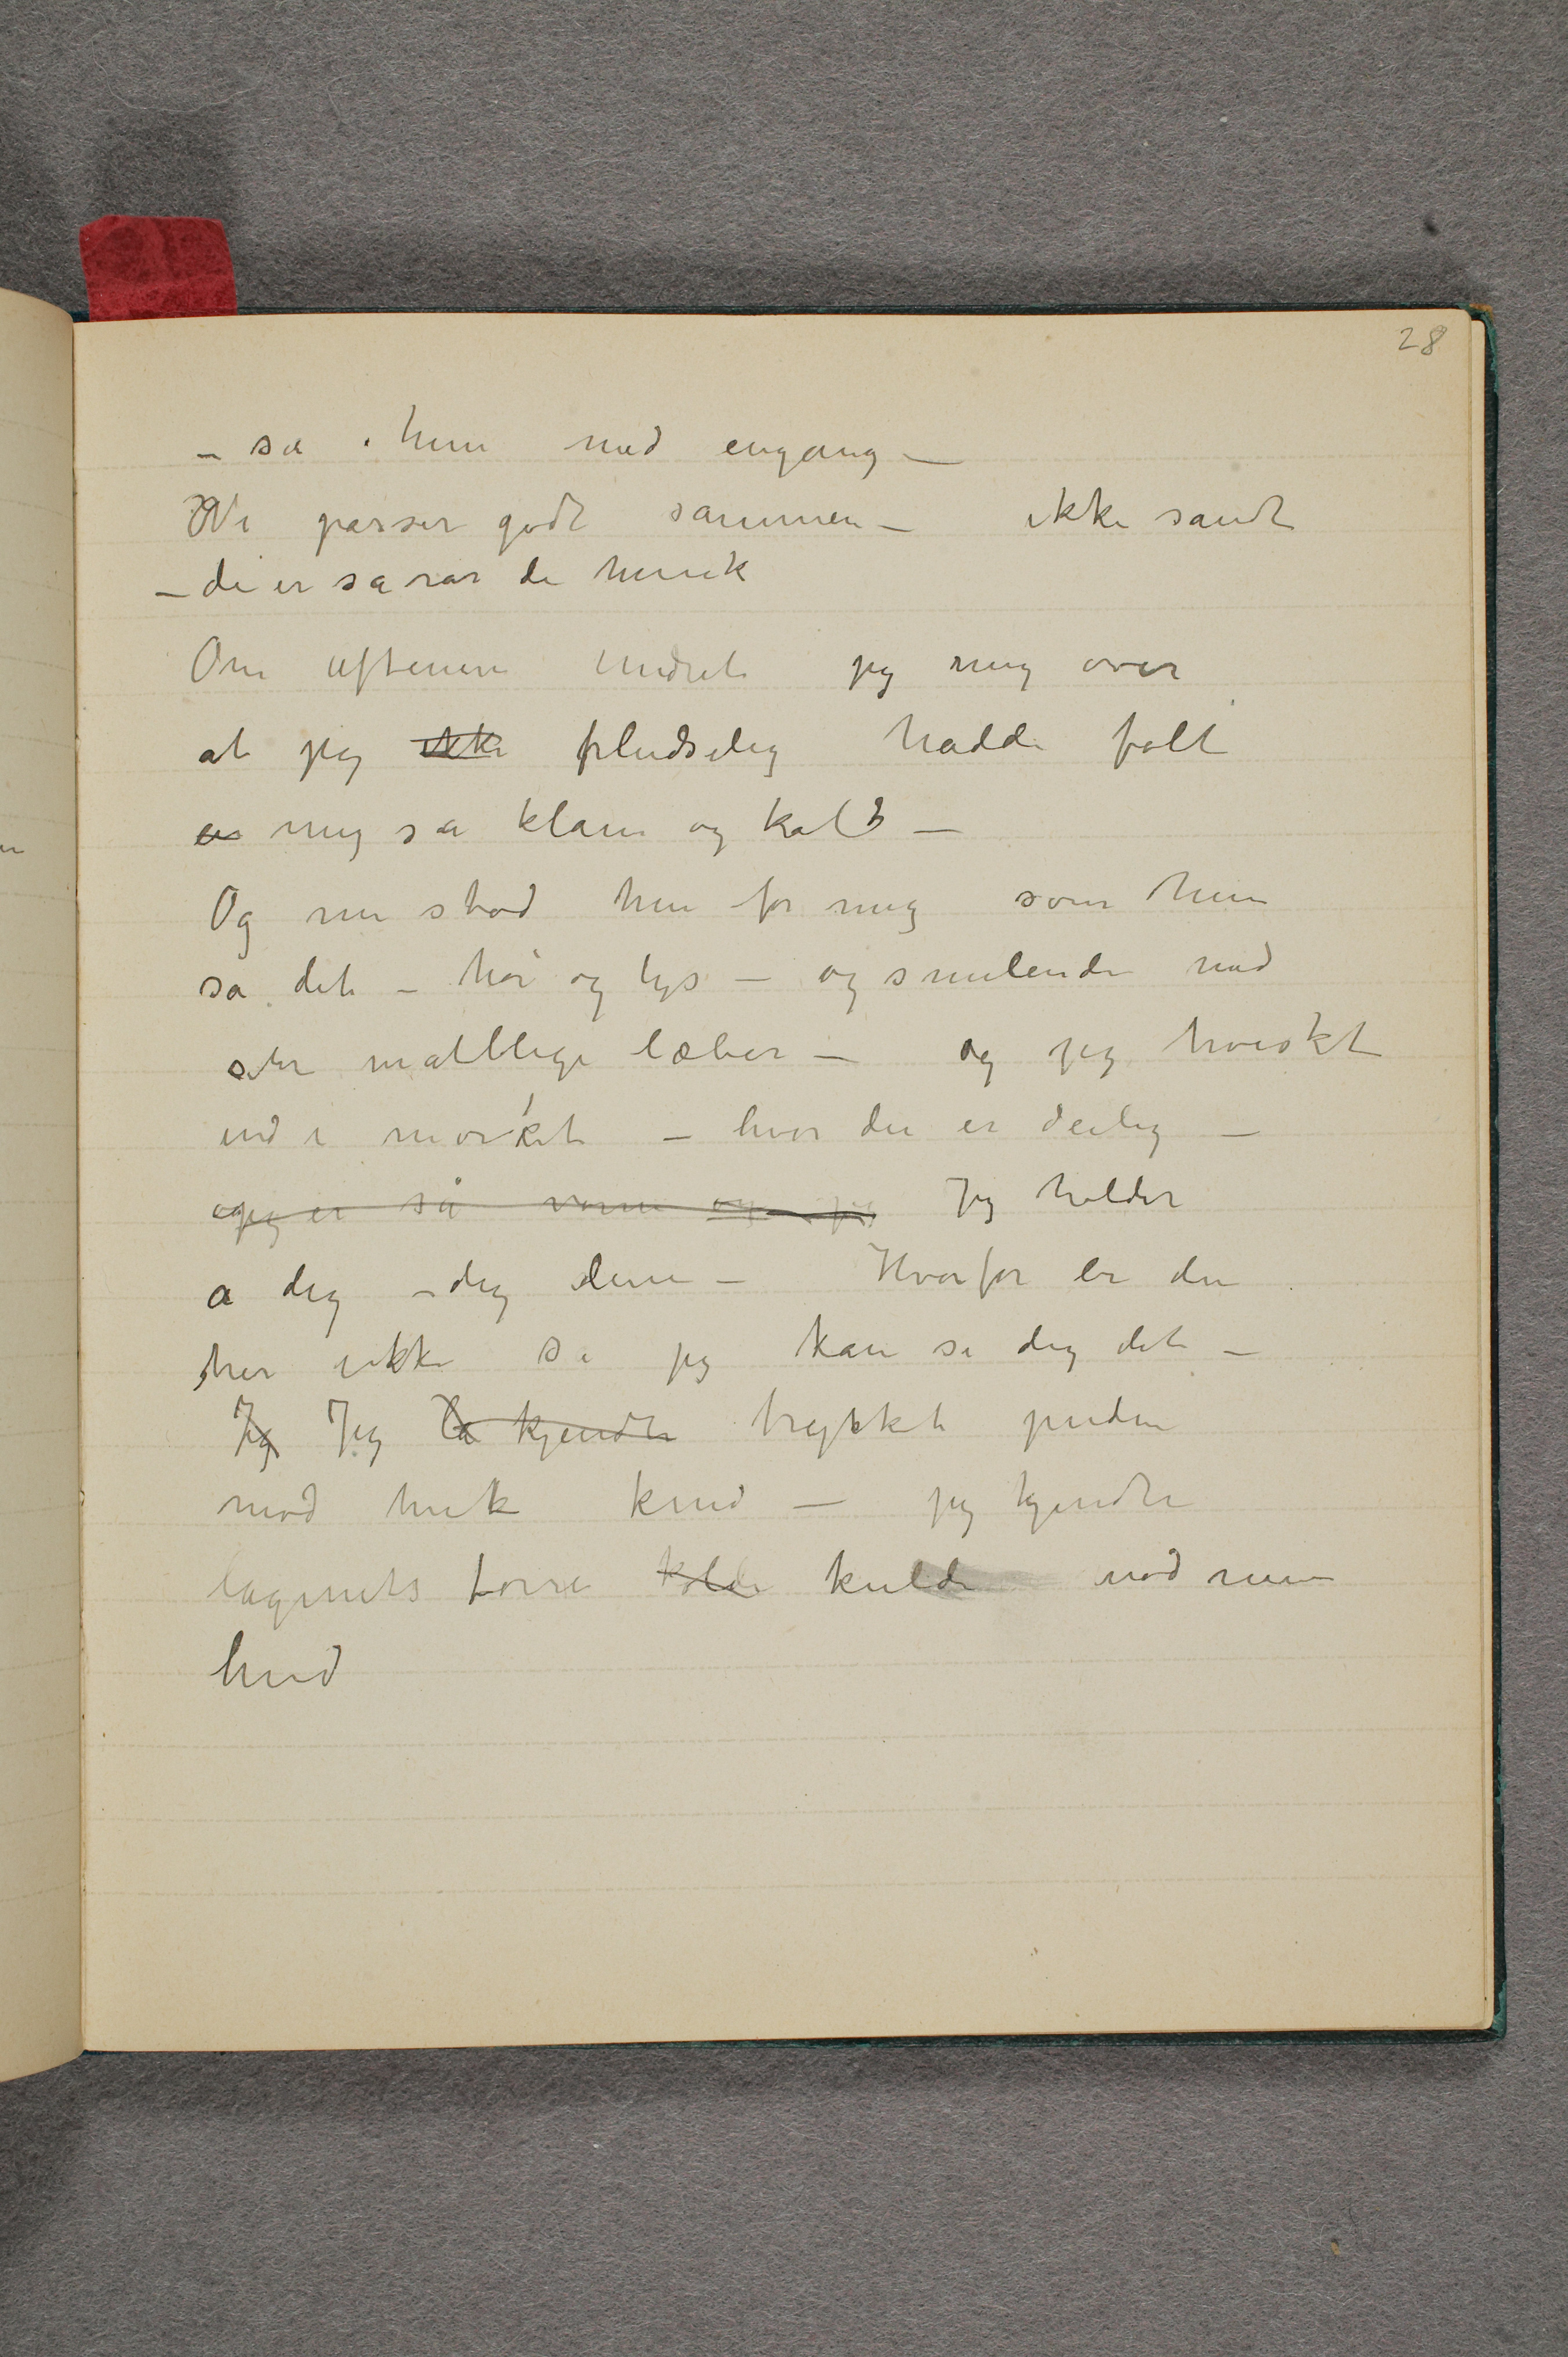 28
– sa hun med engang –
Vi passer godt sammen – ikke sandt
– de er sa rar de
Om aftenen undret jeg mig over
at jeg ikke pludselig hadde følt
mig sa klam og kold –
Og nu stod hun for mig som hun
sa det – høi og lys – og smilende med
sine læber – og jeg hviskt
ind i mørket – hvor du er deilig –
jeg er så varm og jeg Jeg holder
a dig – dig alene – Hvorfor er du
her ikke sa jeg kan si dig det –
Jeg Jeg la kjendte trykket puden
mod kind – jeg kjendte
lagenets tørre kolde kulde mod min
hud